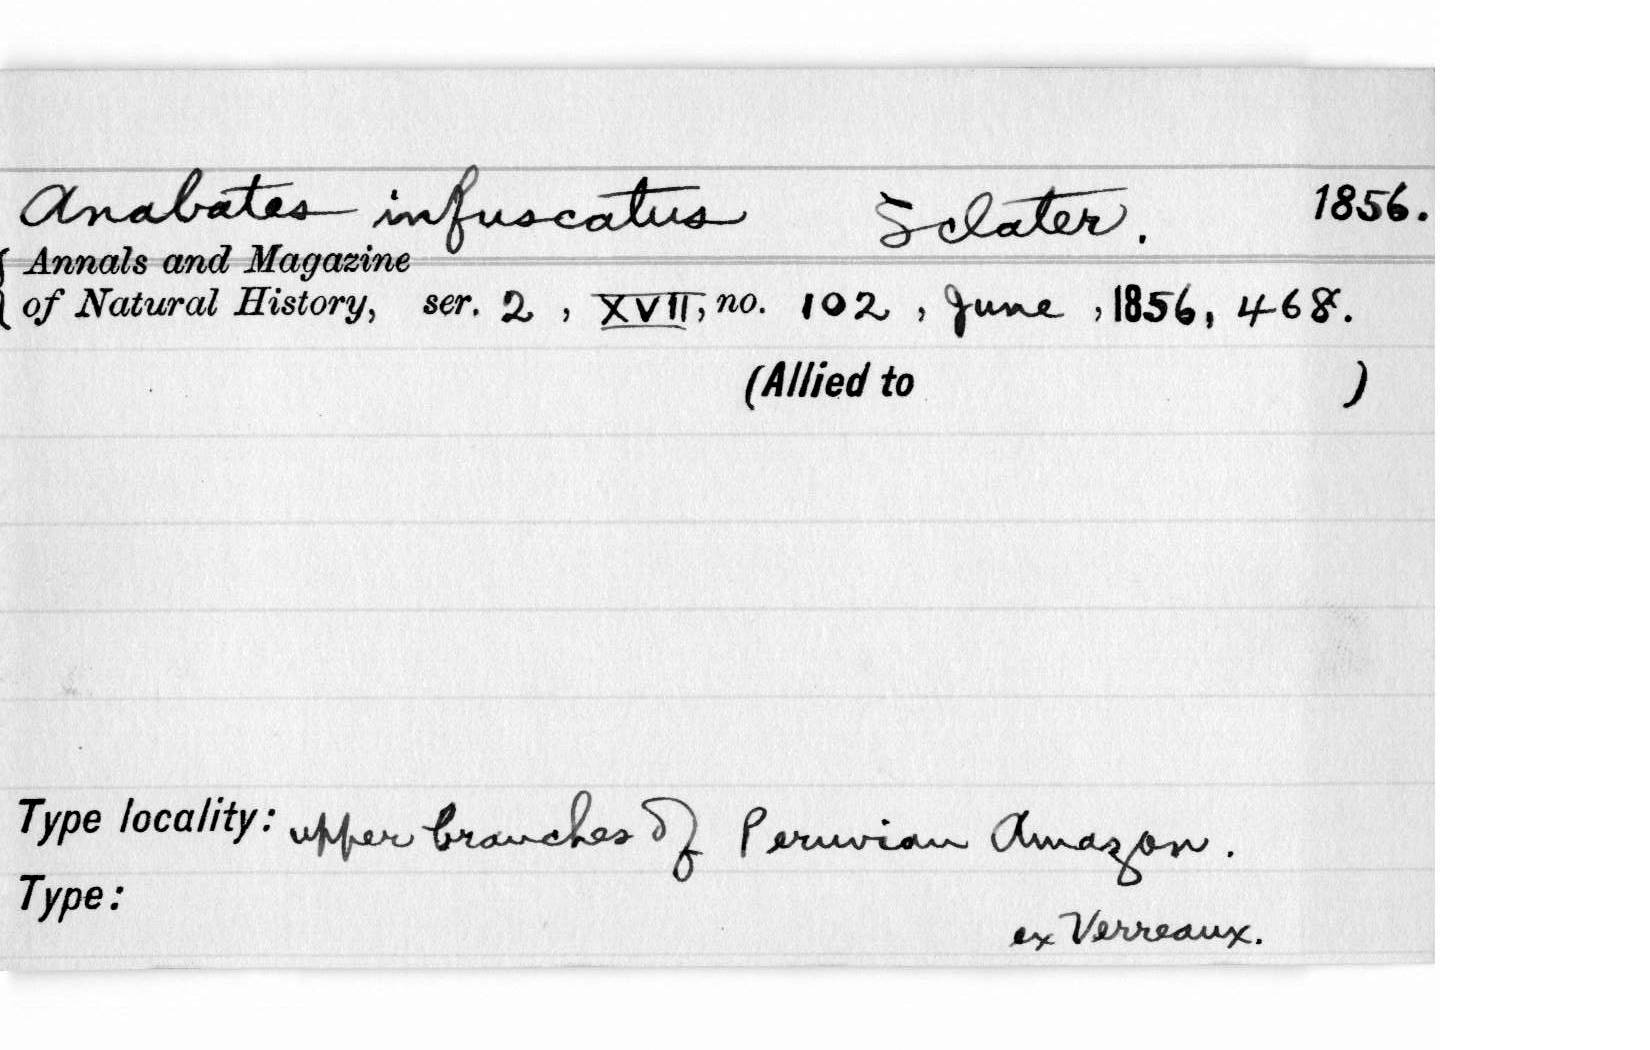 Anabates infuscatus Sclater. 1856.
Annals and Magazine
of Natural History, ser. 2, XVII, no. 102, June, 1856, 468.
(Allied to )
Type locality: upper branches of Peruvian Amazon.
Type:
ex Verreaux.